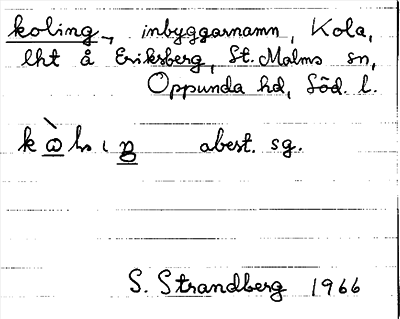 koling, inbyggarnamn, Kola,
lht å Eriksberg, St. Malms sn,
Oppunda hd, Söd. l.
abest. sg.
S. Strandberg 1966